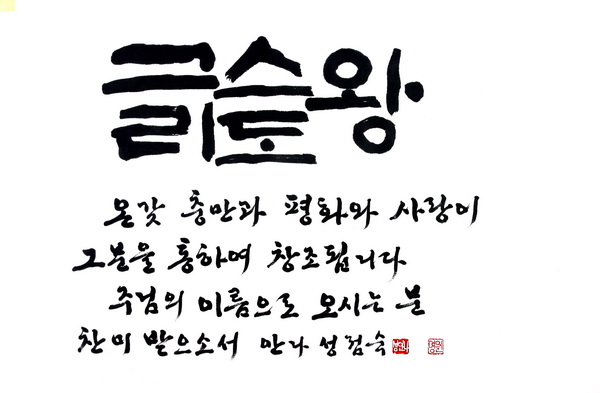 그리스도 왕
온갖 충만과 평화와 사랑이
그분을 통하여 창조됩니다
주님의 이름으로 오시는 분
찬미 받으소서 만나 성첨숙